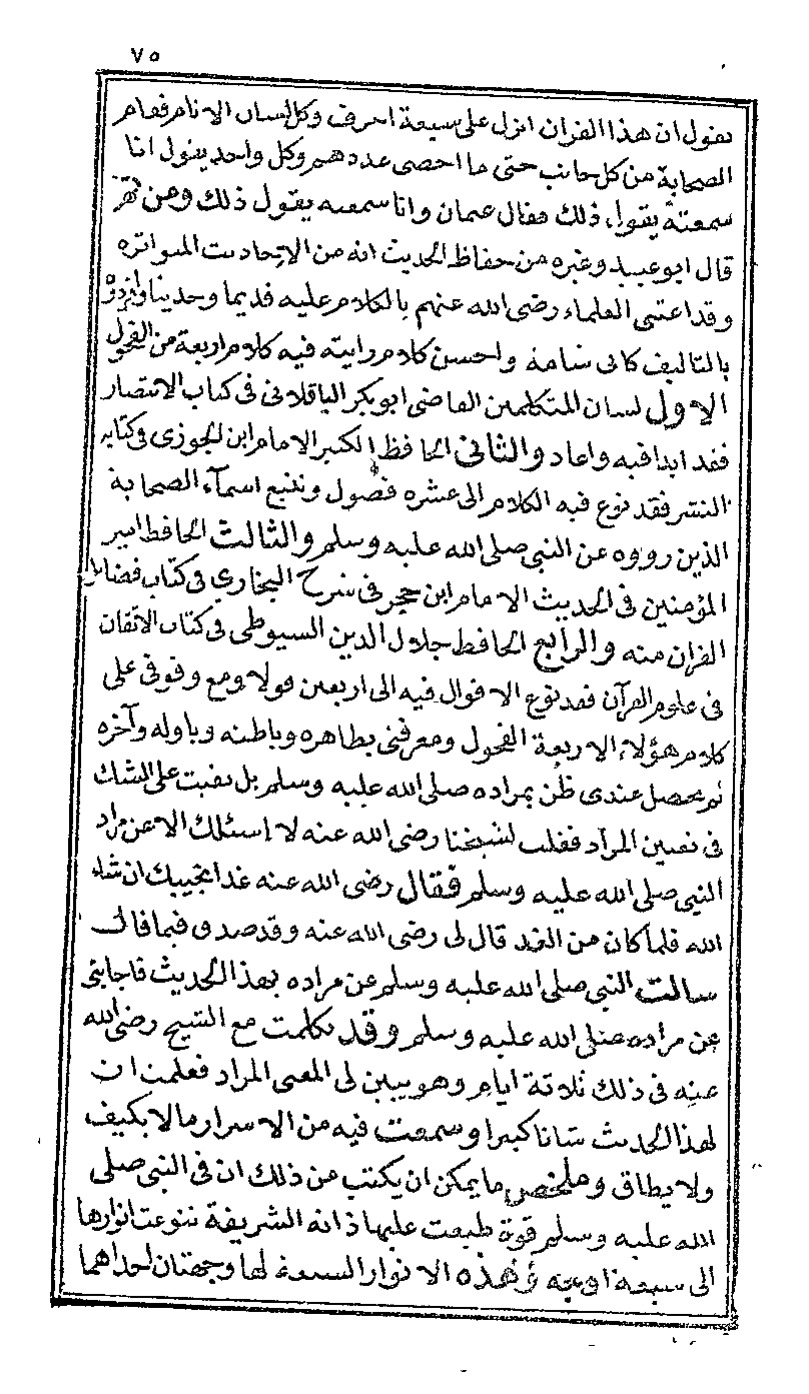 ٧٥
يقول ان هذا القران انزل على سبعة احرف وكل لسان الانام فقام
الصحابة من كل جانب حتى ما احصى عددهم وكل واحد يقول انا
سمعته يقول ذلك فقال عمان وانا سمعته يقول ذلك ومن
قال ابو عبيد وغيره من حفاظ الحديث انه من الاحاديث المتواتره
وقد اعتنى العلماء رضى الله عنهم بالكلام عليه قديما وحديثا وافردوه
بالتاليف كابى شامة واحسن كلام رايته فيه كلام اربعة من الفحول
الاول لسان المتكلمين القاضى ابو بكر الباقلانى فى كتاب الانتصار
فقد ابدا فيه واعاد والثانى الحافظ الكبير الامام ابن الجوزى فى كتابه
النشر فقد نوع فيه الكلام الى عشره فصول وتتبع اسمآء الصحابة
الذين رووه عن النبى صلى الله عليه وسلم والثالث الحافظ امير
المؤمنين فى الحديث الامام ابن حجر فى شرح البخارى فى كتاب فضائل
القران منه والرابع الحافظ جلال الدين السيوطى فى كتاب الاتقان
فى علوم القرآن فقد نوع الاقوال فيه الى اربعين قولا ومع وقوفى على
كلام هؤلاء الاربعة الفحول ومعرفتى بظاهره وباطنه وباوله وآخره
لم يحصل عندى ظن بمراده صلى الله عليه وسلم بل بقيت على الشك
فى تعيين المراد فقلت لشيخنا رضى الله عنه لا اسئلك الا عن مراد
النبى صلى الله عليه وسلم فقال رضى الله عنه غدا نجيبك ان شاء
الله فلما كان من الغد قال لى رضى الله عنه وقد صدق فيما قال
سالت النبى صلى الله عليه وسلم عن مراده بهذا الحديث فاجابنى
عن مراده صلى الله عليه وسلم وقد تكلمت مع الشيخ رضى الله
عنه فى ذلك ثلاثة ايام وهو يبين لى المعنى المراد فعلمت ان
لهذا الحديث شانا كبيرا وسمعت فيه من الاسرار مالا يكيف
ولا يطاق وملخص ما يمكن ان يكتب من ذلك ان فى النبى صلى
الله عليه وسلم قوة طبعت عليها ذاته الشريفة تنوعت انوارها
الى سبعة اوجه وهذه الانوار السبعة لها وجهتان احداهما